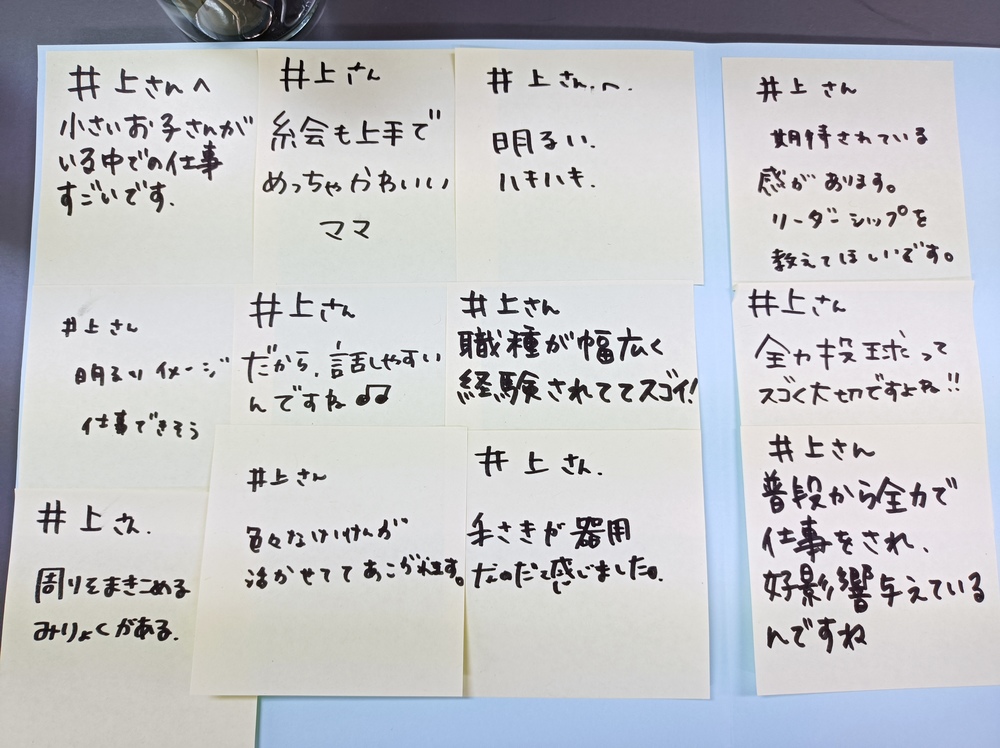 井上さんへ
小さいお子さんが
いる中での仕事
すごいです.
井上さん
絵も上手で
めっちゃかわいい
ママ
井上さん.へ.
明るい.
ハキハキ.
井上さん
期待されている
感があります。
リーダーシップを
教えてほしいです。
井上さん
明るいイメージ
仕事できそう
井上さん
だから,話しやすい
んですね♫
井上さん
職種が幅広く
経験されててスゴイ!
井上さん
全力投球だって
スゴく大切ですよね!!
井上さん.
周りをまきこめる
みりょくがある.
井上さん
色々なけいけんが
活かせててあこがれます。
井上さん.
手さきが器用
なのだと感じました。
井上さん
普段から全力で
仕事をされ、
好影響与えている
んですね